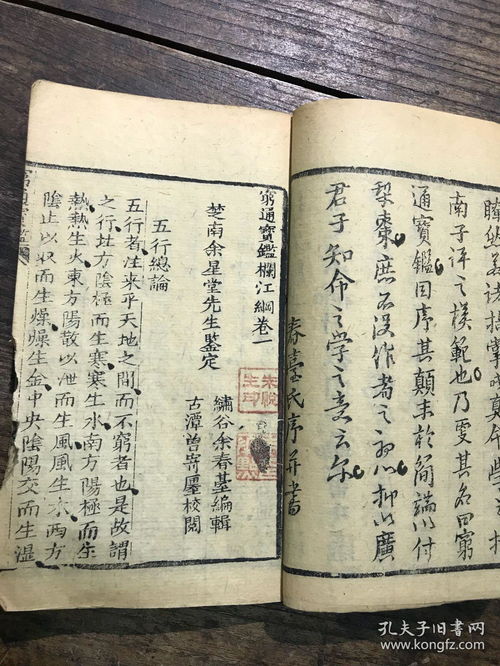 南子評之模範也乃更其名曰窮
通寶鑑因序其顛末於簡端以付
梨棗庶不没作者之初心抑以廣
君子知命之學之意云尔
春臺氏序并書
窮通寶鑑欄江綱卷一
楚南余星堂先生鉴定
繡谷余春臺編輯
古潭曽寄校閲
五行總論
五行者往来乎天地之間而不窮者也是故謂
之行北方陰極而生寒寒生水南方陽極而生
熱熱生火東方陽散以泄而生風風生木西方
陰止以收而生燥燥生金中央陰陽交而生溼
孔夫子旧书网
kongfz.com